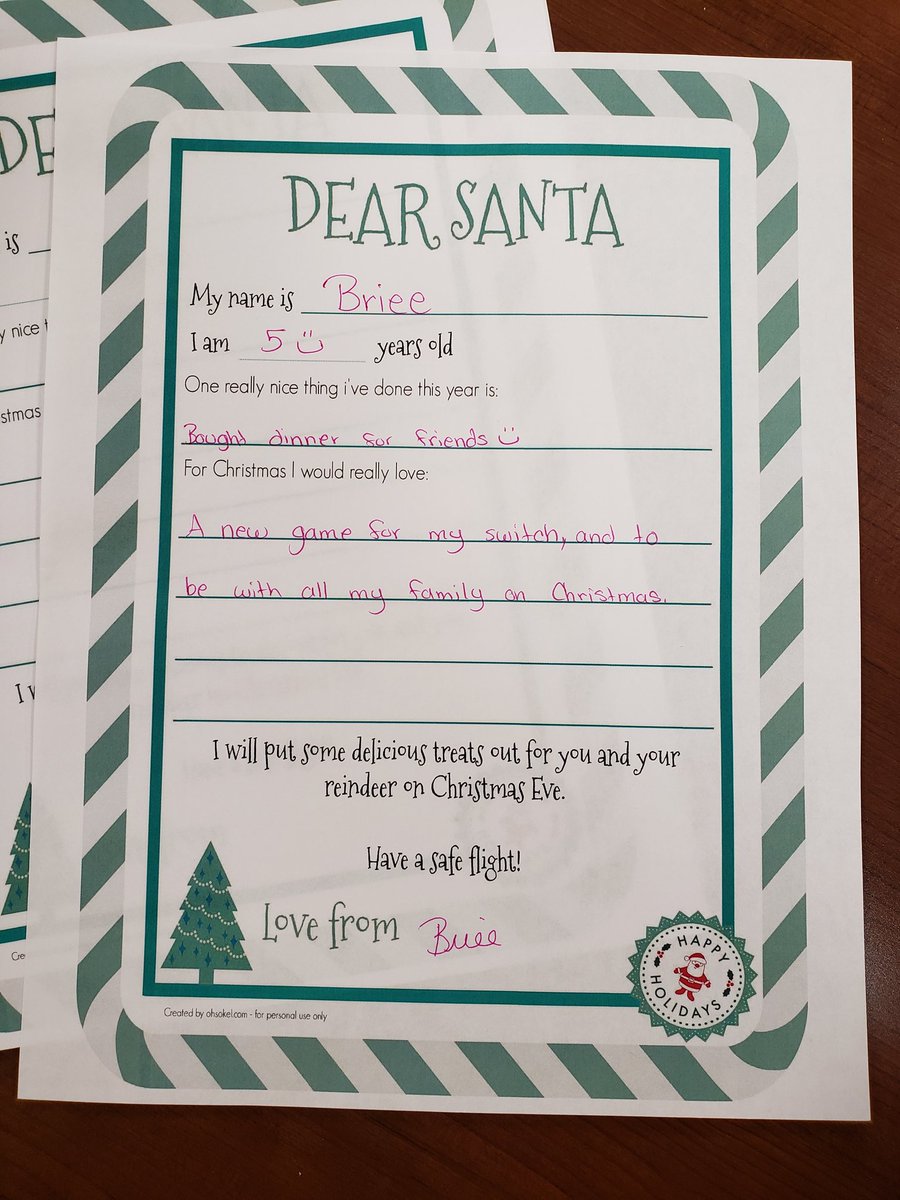 DEAR SANTA
My name is Briee
I am 5 years old
One really nice thing i've done this year is:
Bought dinner for friends
For Christmas I would really love:
A new game for my switch, and to
be with all my family on Christmas.
I will put some delicious treats out for you and your
reindeer on Christmas Eve.
Have a safe flight!
Love from Briee
HAPPY
HOLIDAYS
Created by ohsokel.com - for personal use only
DE
is
y nice
stmas
I w
Cre